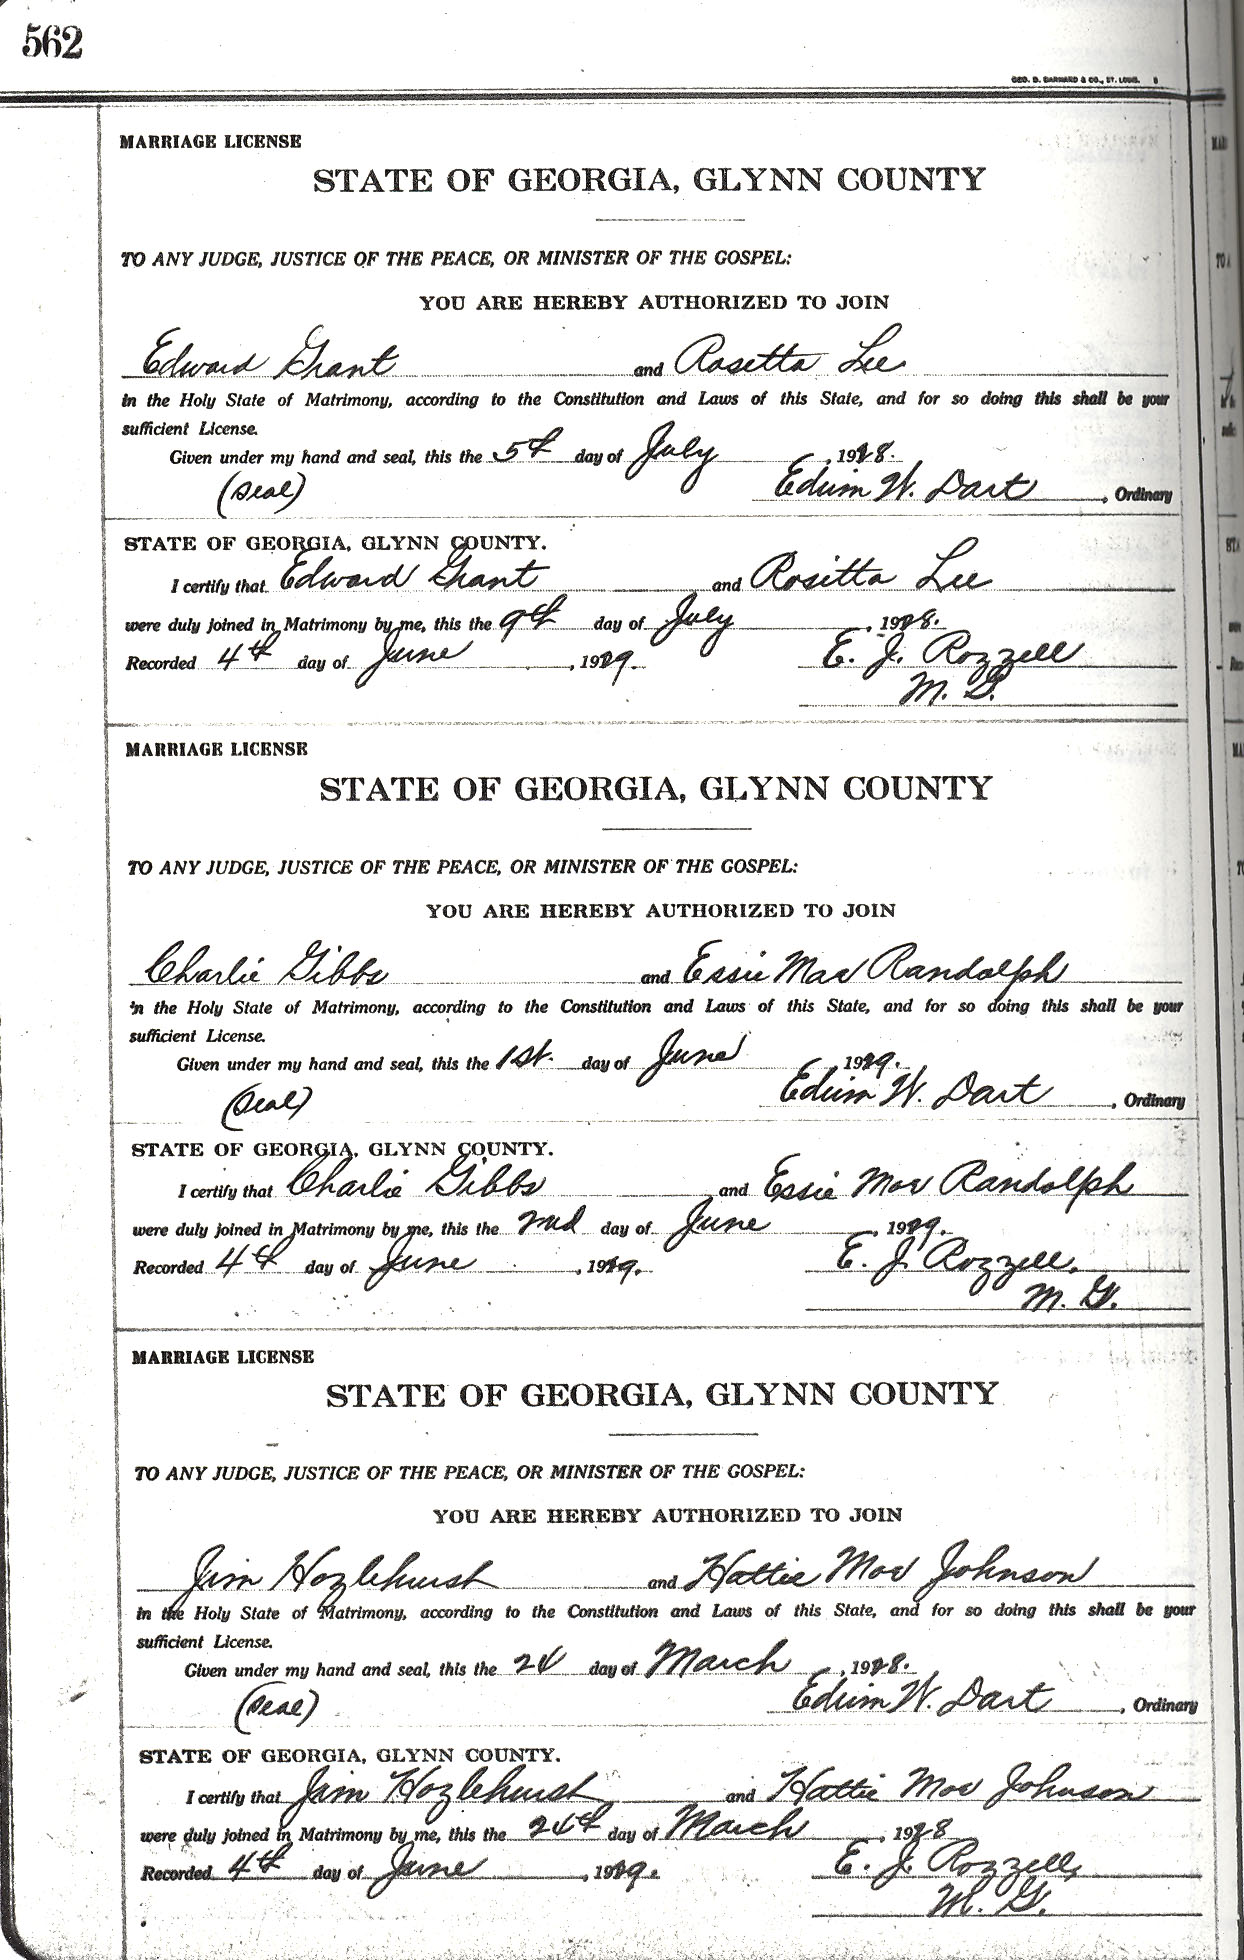 562
GEO. D. BARNARD & CO., ST. LOUIS. B
MARRIAGE LICENSE
STATE OF GEORGIA, GLYNN COUNTY
TO ANY JUDGE, JUSTICE OF THE PEACE, OR MINISTER OF THE GOSPEL:
YOU ARE HEREBY AUTHORIZED TO JOIN
Edward Grant and Rosetta Lee
in the Holy State of Matrimony, according to the Constitution and Laws of this State, and for so doing this shall be your
sufficient License.
Given under my hand and seal, this the 5th day of July, 1928.
(Seal) Edwin W. Dart, Ordinary
STATE OF GEORGIA, GLYNN COUNTY.
I certify that Edward Grant and Rositta Lee
were duly joined in Matrimony by me, this the 9th day of July, 1928.
Recorded 4th day of June, 1929. E. J. Rozzell
M. G.
MARRIAGE LICENSE
STATE OF GEORGIA, GLYNN COUNTY
TO ANY JUDGE, JUSTICE OF THE PEACE, OR MINISTER OF THE GOSPEL:
YOU ARE HEREBY AUTHORIZED TO JOIN
Charlie Gibbs and Essie Mae Randolph
in the Holy State of Matrimony, according to the Constitution and Laws of this State, and for so doing this shall be your
sufficient License.
Given under my hand and seal, this the 1st. day of June 1929.
(Seal) Edwin W. Dart, Ordinary
STATE OF GEORGIA, GLYNN COUNTY.
I certify that Charlie Gibbs and Essie Mae Randolph
were duly joined in Matrimony by me, this the 2nd day of June, 1929.
Recorded 4th day of June, 1929. E. J. Rozzell,
M. G.
MARRIAGE LICENSE
STATE OF GEORGIA, GLYNN COUNTY
TO ANY JUDGE, JUSTICE OF THE PEACE, OR MINISTER OF THE GOSPEL:
YOU ARE HEREBY AUTHORIZED TO JOIN
Jim Hazlehurst and Hattie Mae Johnson
in the Holy State of Matrimony, according to the Constitution and Laws of this State, and for so doing this shall be your
sufficient License.
Given under my hand and seal, this the 24 day of March, 1928.
(Seal) Edwin W. Dart, Ordinary
STATE OF GEORGIA, GLYNN COUNTY.
I certify that Jim Hazlehurst and Hattie Mae Johnson
were duly joined in Matrimony by me, this the 24th day of March, 1928
Recorded 4th day of June, 1929. E. J. Rozzell,
M. G.